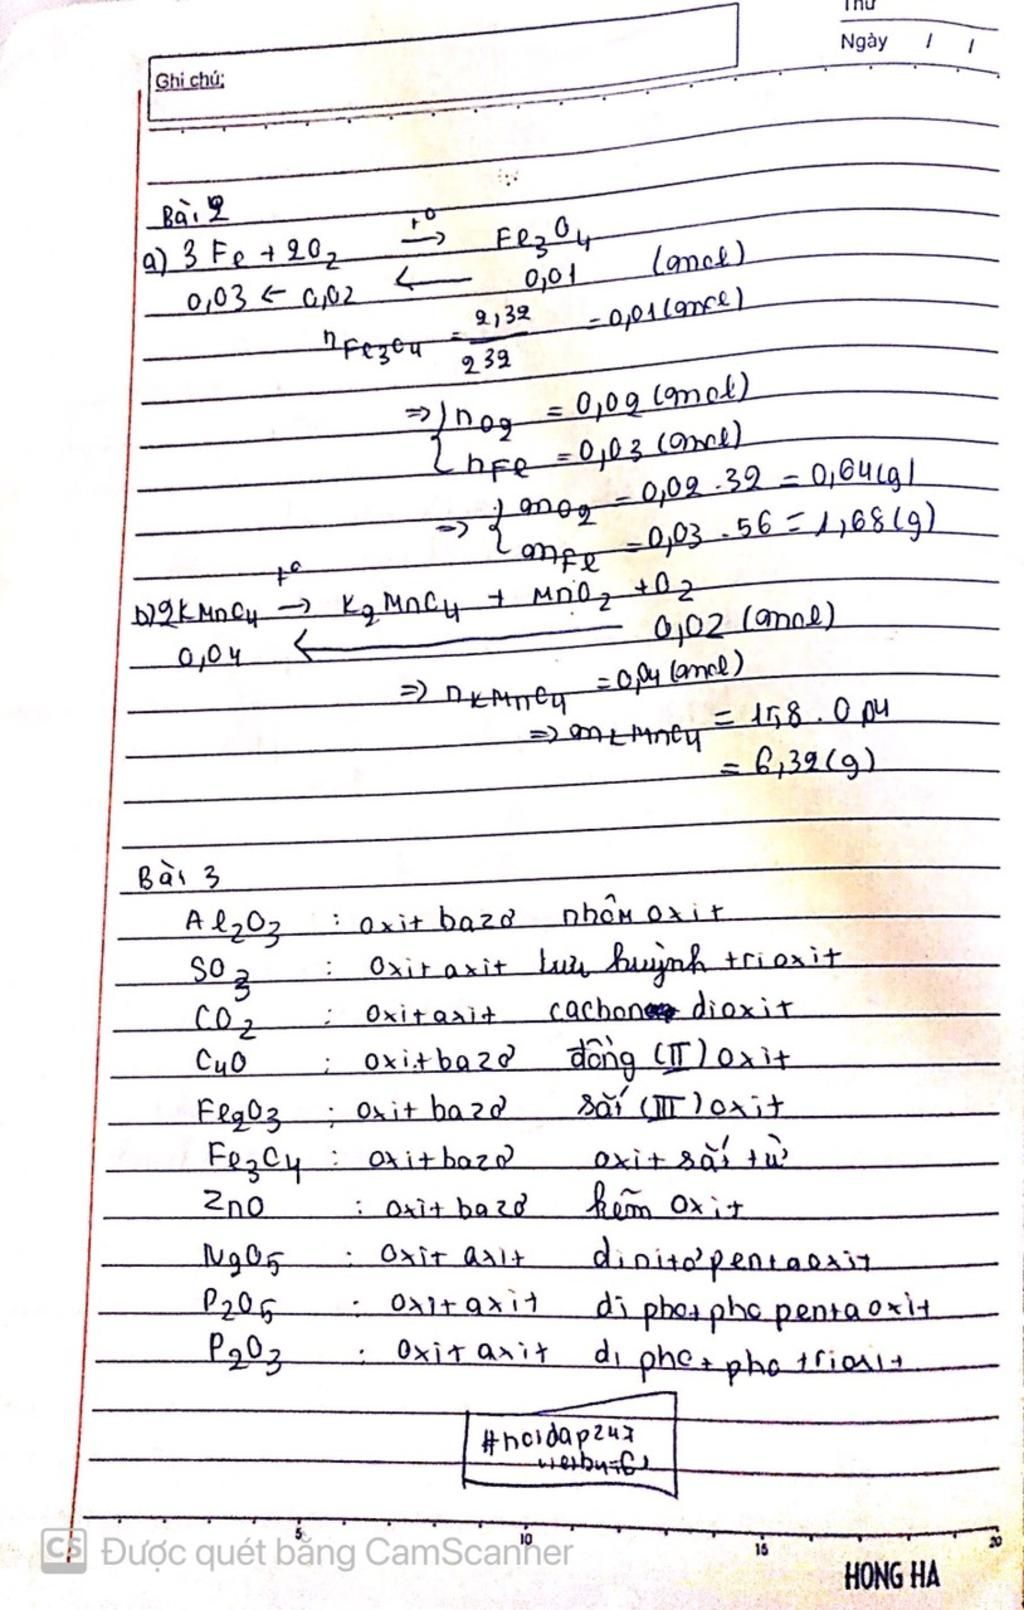 Thứ
Ngày / /
Ghi chú:
Bài 2
a) 3 Fe + 2O2 t° → Fe3O4
0,03 ← 0,02 ← 0,01 (mol)
nFe3O4 = 2,32/232 = 0,01 (mol)
=> { nO2 = 0,02 (mol)
nFe = 0,03 (mol)
=> { mO2 = 0,02 . 32 = 0,64 (g)
mFe = 0,03 . 56 = 1,68 (g)
b) 2KMnO4 t° → K2MnO4 + MnO2 + O2
0,04 ← 0,02 (mol)
=> nKMnO4 = 0,04 (mol)
=> mKMnO4 = 158 . 0,04
= 6,32 (g)
Bài 3
Al2O3 : oxit bazơ nhôm oxit
SO3 : oxit axit lưu huỳnh trioxit
CO2 : oxit axit cacbon dioxit
CuO : oxit bazơ đồng (II) oxit
Fe2O3 : oxit bazơ sắt (III) oxit
Fe3O4 : oxit bazơ oxit sắt từ
ZnO : oxit bazơ kẽm oxit
N2O5 : oxit axit dinitơ pentaoxit
P2O5 : oxit axit di photpho pentaoxit
P2O3 : oxit axit di photpho trioxit
#hoidap247
5 10 15 20
CS Được quét bằng CamScanner
HONG HA